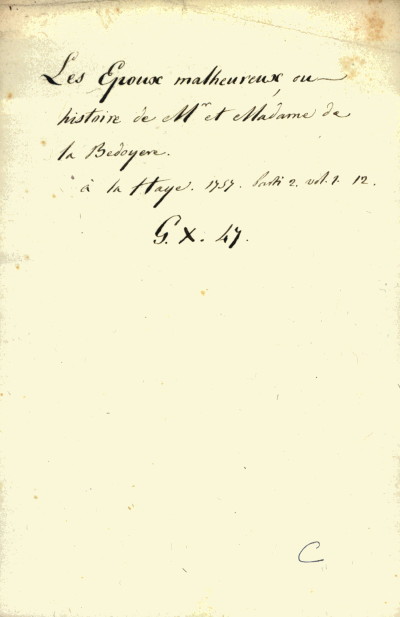 Les Epoux malheureux, ou
histoire de Mr et Madame de
la Bedoyere.
à la Haye. 1757. Parti 2. vol. 1. 12.
G. X. 47.
C